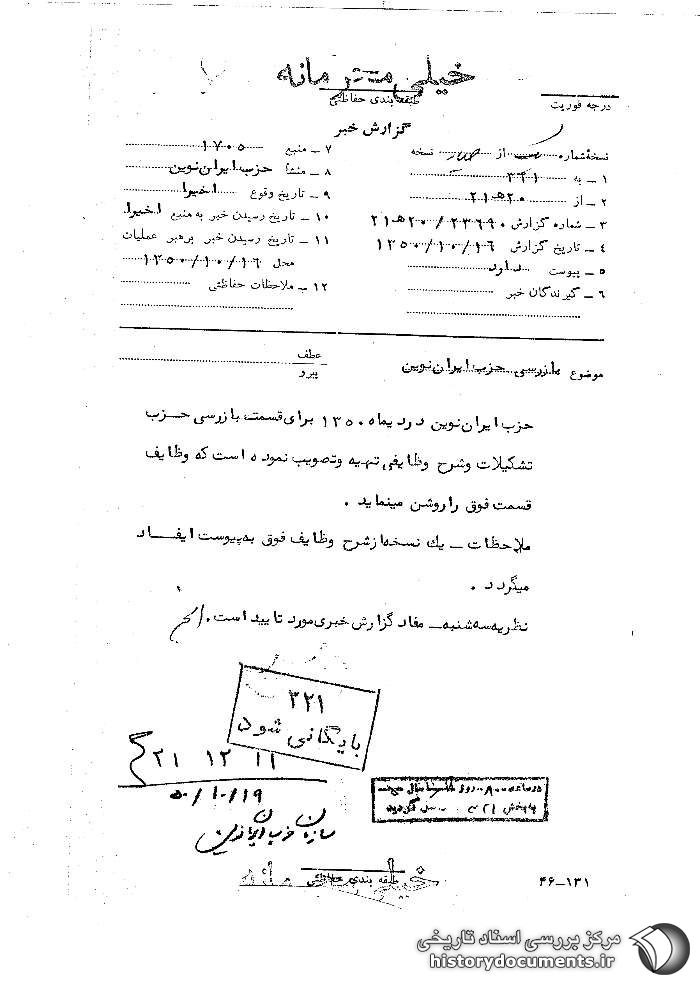 خیلی محرمانه
طبقه بندی حفاظتی
درجه فوریت
گزارش خبر
نسخهٔ شماره یک از نسخه
۱ – به ۳۴۱
۲ – از ۲۱ﻫ۲۰
۳ – شماره گزارش ۲۱ﻫ۲۰/۲۳۶۹۰
۴ – تاریخ گزارش ۱۳۵۰/۱۰/۱۶
۵ – پیوست دارد
۶ – گیرندگان خبر
۷ – منبع ۱۷۰۵
۸ – منشأ حزب ایران نوین
۹ – تاریخ وقوع اخیرا
۱۰ – تاریخ رسیدن خبر به منبع اخیرا
۱۱ – تاریخ رسیدن خبر برهبر عملیات
محل ۱۳۵۰/۱۰/۱۶
۱۲ – ملاحظات حفاظتی
موضوع بازرسی حزب ایران نوین
عطف
پیرو
حزب ایران نوین در دیماه ۱۳۵۰ برای قسمت بازرسی حزب
تشکیلات وشرح وظایفی تهیه وتصویب نموده است که وظایف
قسمت فوق را روشن مینماید .
ملاحظات – یك نسخه از شرح وظایف فوق به پیوست ایفاد
میگردد .
نظریه سه شنبه – مفاد گزارش خبری مورد تایید است .
۳۲۱
بایگانی شود
۲۱ ۱۲ ۱۱
۵۰/۱۰/۱۹
سازمان حزب ایران نوین
طبقه بندی حفاظتی
خیلی محرمانه
۴۶–۱۳۱
مرکز بررسی اسناد تاریخی
historydocuments.ir